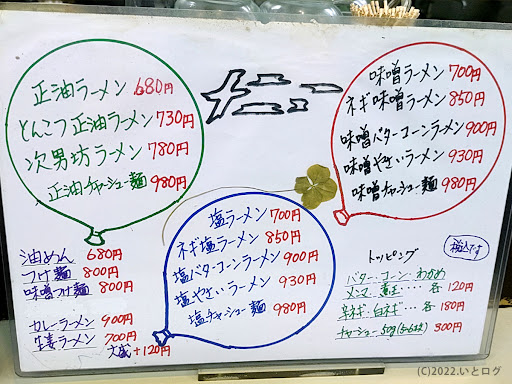 正油ラーメン 680円
とんこつ正油ラーメン 730円
次男坊ラーメン 780円
正油チャーシュー麺 980円
味噌ラーメン 700円
ネギ味噌ラーメン 850円
味噌バターコーンラーメン 900円
味噌やさいラーメン 930円
味噌チャーシュー麺 980円
塩ラーメン 700円
ネギ塩ラーメン 850円
塩バターコーンラーメン 900円
塩やさいラーメン 930円
塩チャーシュー麺 980円
油めん 680円
つけ麺 800円
味噌つけ麺 800円
カレーラーメン 900円
生姜ラーメン 700円
大盛+120円
トッピング
税込です
バター・コーン・わかめ
メンマ・煮玉・・・・各120円
辛ネギ・白ネギ・・・各180円
チャーシュー 50g(5〜6枚) 300円
(C)2022.いとログ